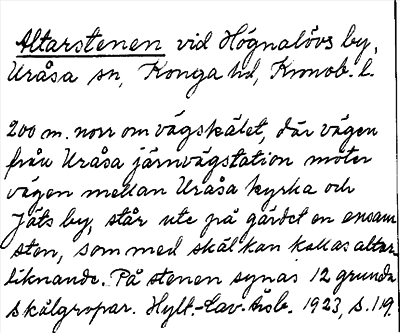 Altarstenen vid Högnalövs by,
Uråsa sn, Konga hd, Kronob. l.
200 m. norr om vägskälet, där vägen
från Uråsa järnvägstation möter
vägen mellan Uråsa kyrka och
Jäts by, står ute på gärdet en ensam
sten, som med skäl kan kallas altar-
liknande. På stenen synas 12 grunda
skålgropar. Hylt.-Cav. Årsb. 1923, s. 119.